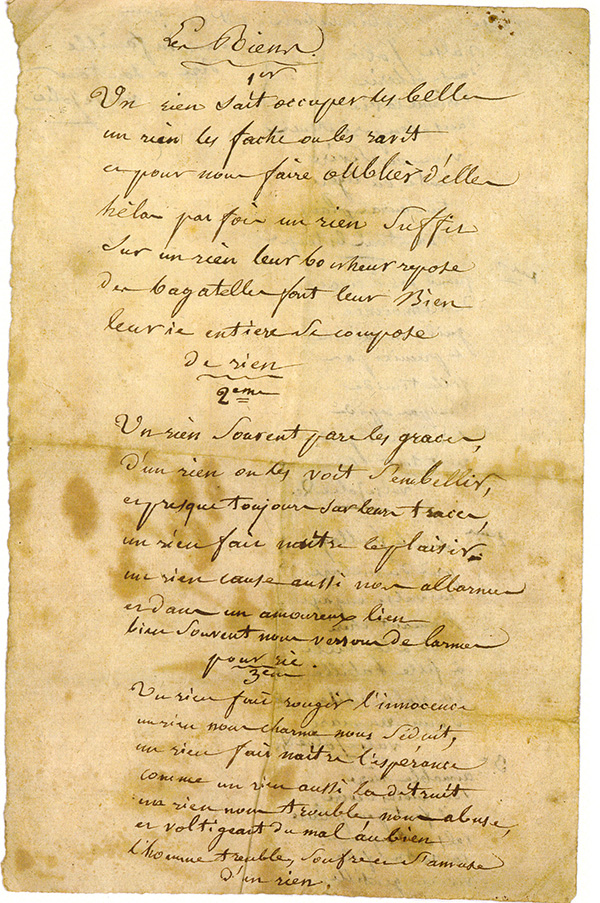 Les Riens.
1er
Un rien sait occuper les belles
un rien les fache ou les ravit
et pour nous faire oublier d'elles
hélas par fois un rien suffit
Sur un rien leur bonheur repose
Des bagatelles font leur Bien
leur vie entiere se compose
de rien
2eme
Un rien souvent pare les graces,
d'un rien on les voit s'embellir,
et presque toujours sur leurs traces,
un rien fait naitre le plaisir.
un rien cause aussi nos allarmes
et dans un amoureux lien
bien souvent nous versons de larmes
pour rie.
3eme
Un rien fait rougir l'innocence
un rien nous charme nous séduit,
un rien fait naitre l'espérance
comme un rien aussi la détruit
un rien nous trouble nous abuse,
et voltigeant du mal au bien
l'homme tremble, soufre et s'amuse
d'un rien.